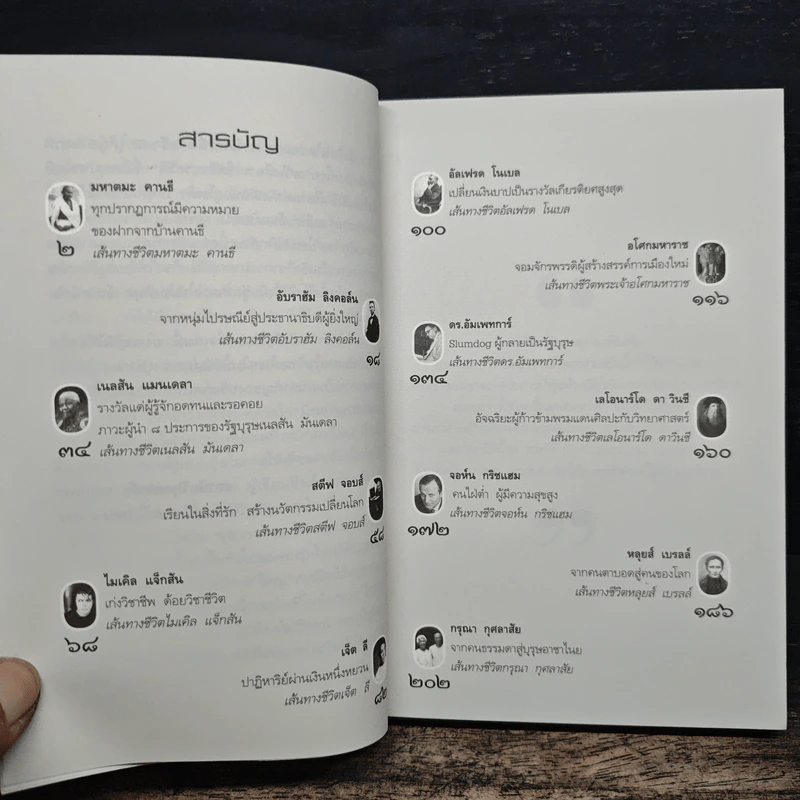 สารบัญ
มหาตมะ คานธี
ทุกปรากฏการณ์มีความหมาย
ของฝากจากบ้านคานธี
เส้นทางชีวิตมหาตมะ คานธี
๒
อับราฮัม ลิงคอล์น
จากหนุ่มไปรษณีย์สู่ประธานาธิบดีผู้ยิ่งใหญ่
เส้นทางชีวิตอับราฮัม ลิงคอล์น
๑๘
เนลสัน แมนเดลา
รางวัลแด่ผู้รู้จักอดทนและรอคอย
ภาวะผู้นำ ๘ ประการของรัฐบุรุษเนลสัน มันเดลา
เส้นทางชีวิตเนลสัน มันเดลา
๓๔
สตีฟ จอบส์
เรียนในสิ่งที่รัก สร้างนวัตกรรมเปลี่ยนโลก
เส้นทางชีวิตสตีฟ จอบส์
๕๘
ไมเคิล แจ็กสัน
เก่งวิชาชีพ ด้อยวิชาชีวิต
เส้นทางชีวิตไมเคิล แจ็กสัน
๖๘
เจ็ต ลี
ปาฏิหาริย์ผ่านเงินหนึ่งหยวน
เส้นทางชีวิตเจ็ต ลี
๘๒
อัลเฟรด โนเบล
เปลี่ยนเงินบาปเป็นรางวัลเกียรติยศสูงสุด
เส้นทางชีวิตอัลเฟรด โนเบล
๑๐๐
อโศกมหาราช
จอมจักรพรรดิผู้สร้างสรรค์การเมืองใหม่
เส้นทางชีวิตพระเจ้าอโศกมหาราช
๑๑๖
ดร.อัมเพทการ์
Slumdog ผู้กลายเป็นรัฐบุรุษ
เส้นทางชีวิตดร.อัมเพทการ์
๑๓๔
เลโอนาร์โด ดา วินชี
อัจฉริยะผู้ก้าวข้ามพรมแดนศิลปะกับวิทยาศาสตร์
เส้นทางชีวิตเลโอนาร์โด ดาวินชี
๑๖๐
จอห์น กริชแฮม
คนใฝ่ต่ำ ผู้มีความสุขสูง
เส้นทางชีวิตจอห์น กริชแฮม
๑๗๒
หลุยส์ เบรลล์
จากคนตาบอดสู่คนของโลก
เส้นทางชีวิตหลุยส์ เบรลล์
๑๘๖
กรุณา กุศลาสัย
จากคนธรรมดาสู่บุรุษอาชาไนย
เส้นทางชีวิตกรุณา กุศลาสัย
๒๐๒